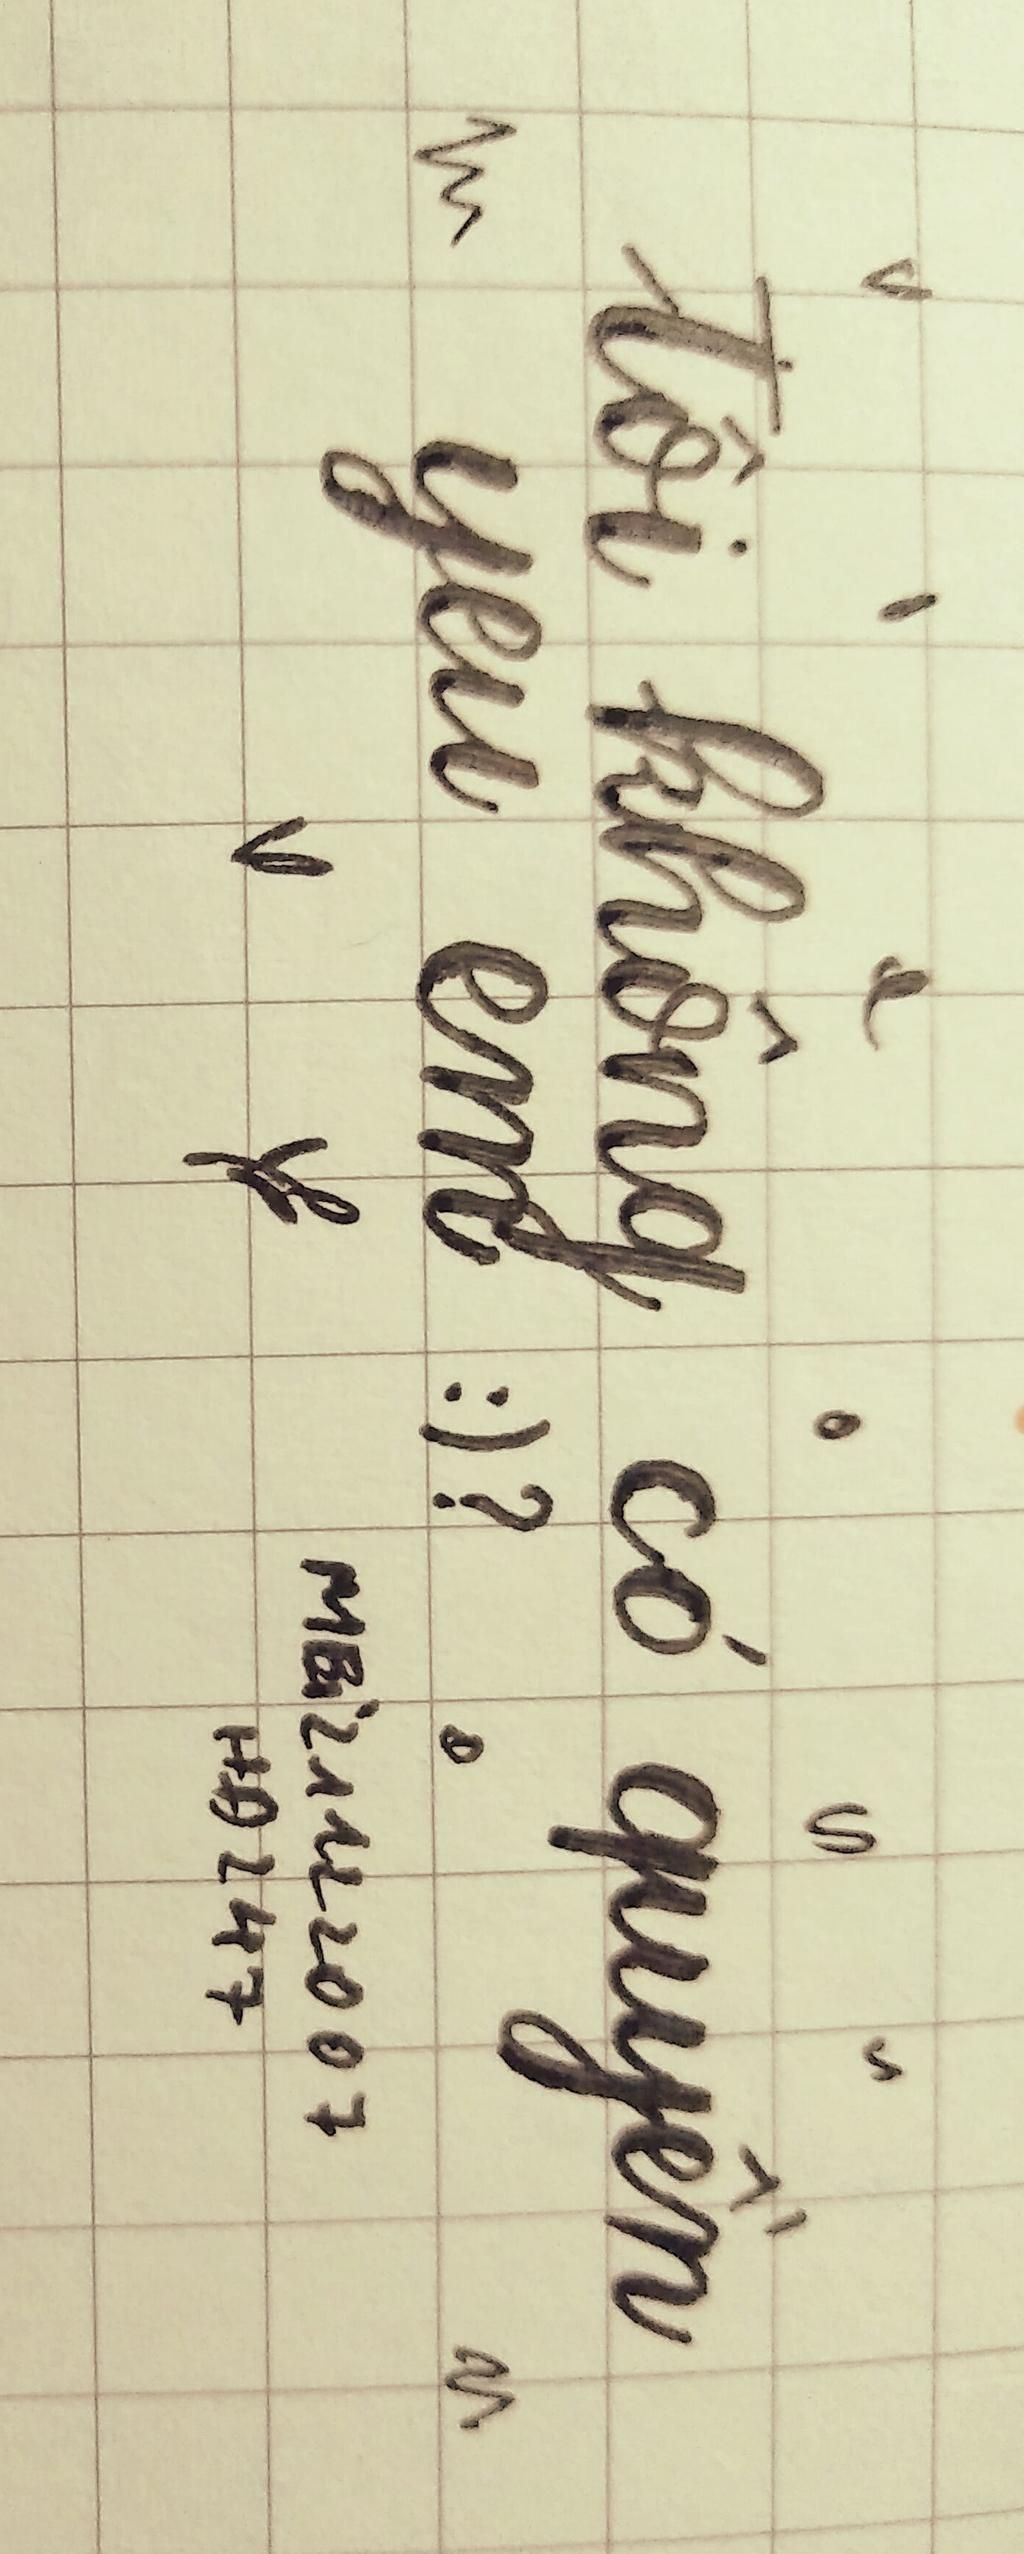 Tôi không có quyền
yeu em :)?
MB:21122007
HQ247